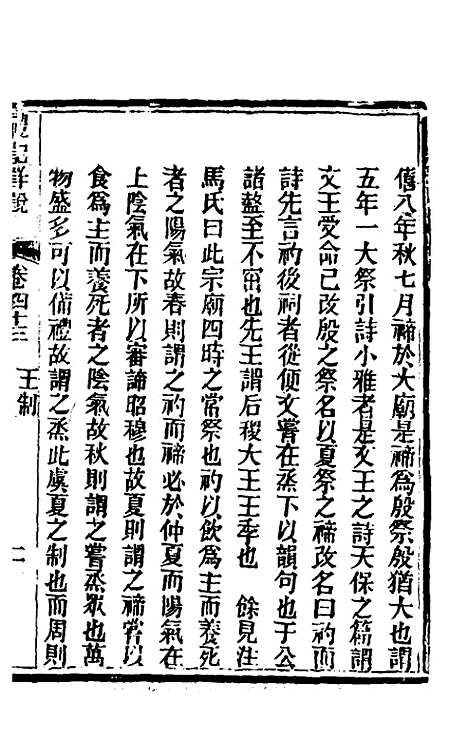 僖八年秋七月禘於大廟是禘爲殷祭殷猶大也謂
五年一大祭引詩小雅者是文王之詩天保之篇謂
文王受命已改殷之祭名以夏祭之禘改名曰礿而
詩先言礿後祠者從便文嘗在烝下以韻句也于公
諸盩至不窋也先王謂后稷大王王季也　餘見注
馬氏曰此宗廟四時之常祭也礿以飲爲主而養死
者之陽氣故春則謂之礿而禘必於仲夏而陽氣在
上陰氣在下所以審諦昭穆也故夏則謂之禘嘗以
食爲主而養死者之陰氣故秋則謂之嘗烝眾也萬
物盛多可以備禮故謂之烝此虞夏之制也而周則
禮記詳說
卷四十三
王制
二